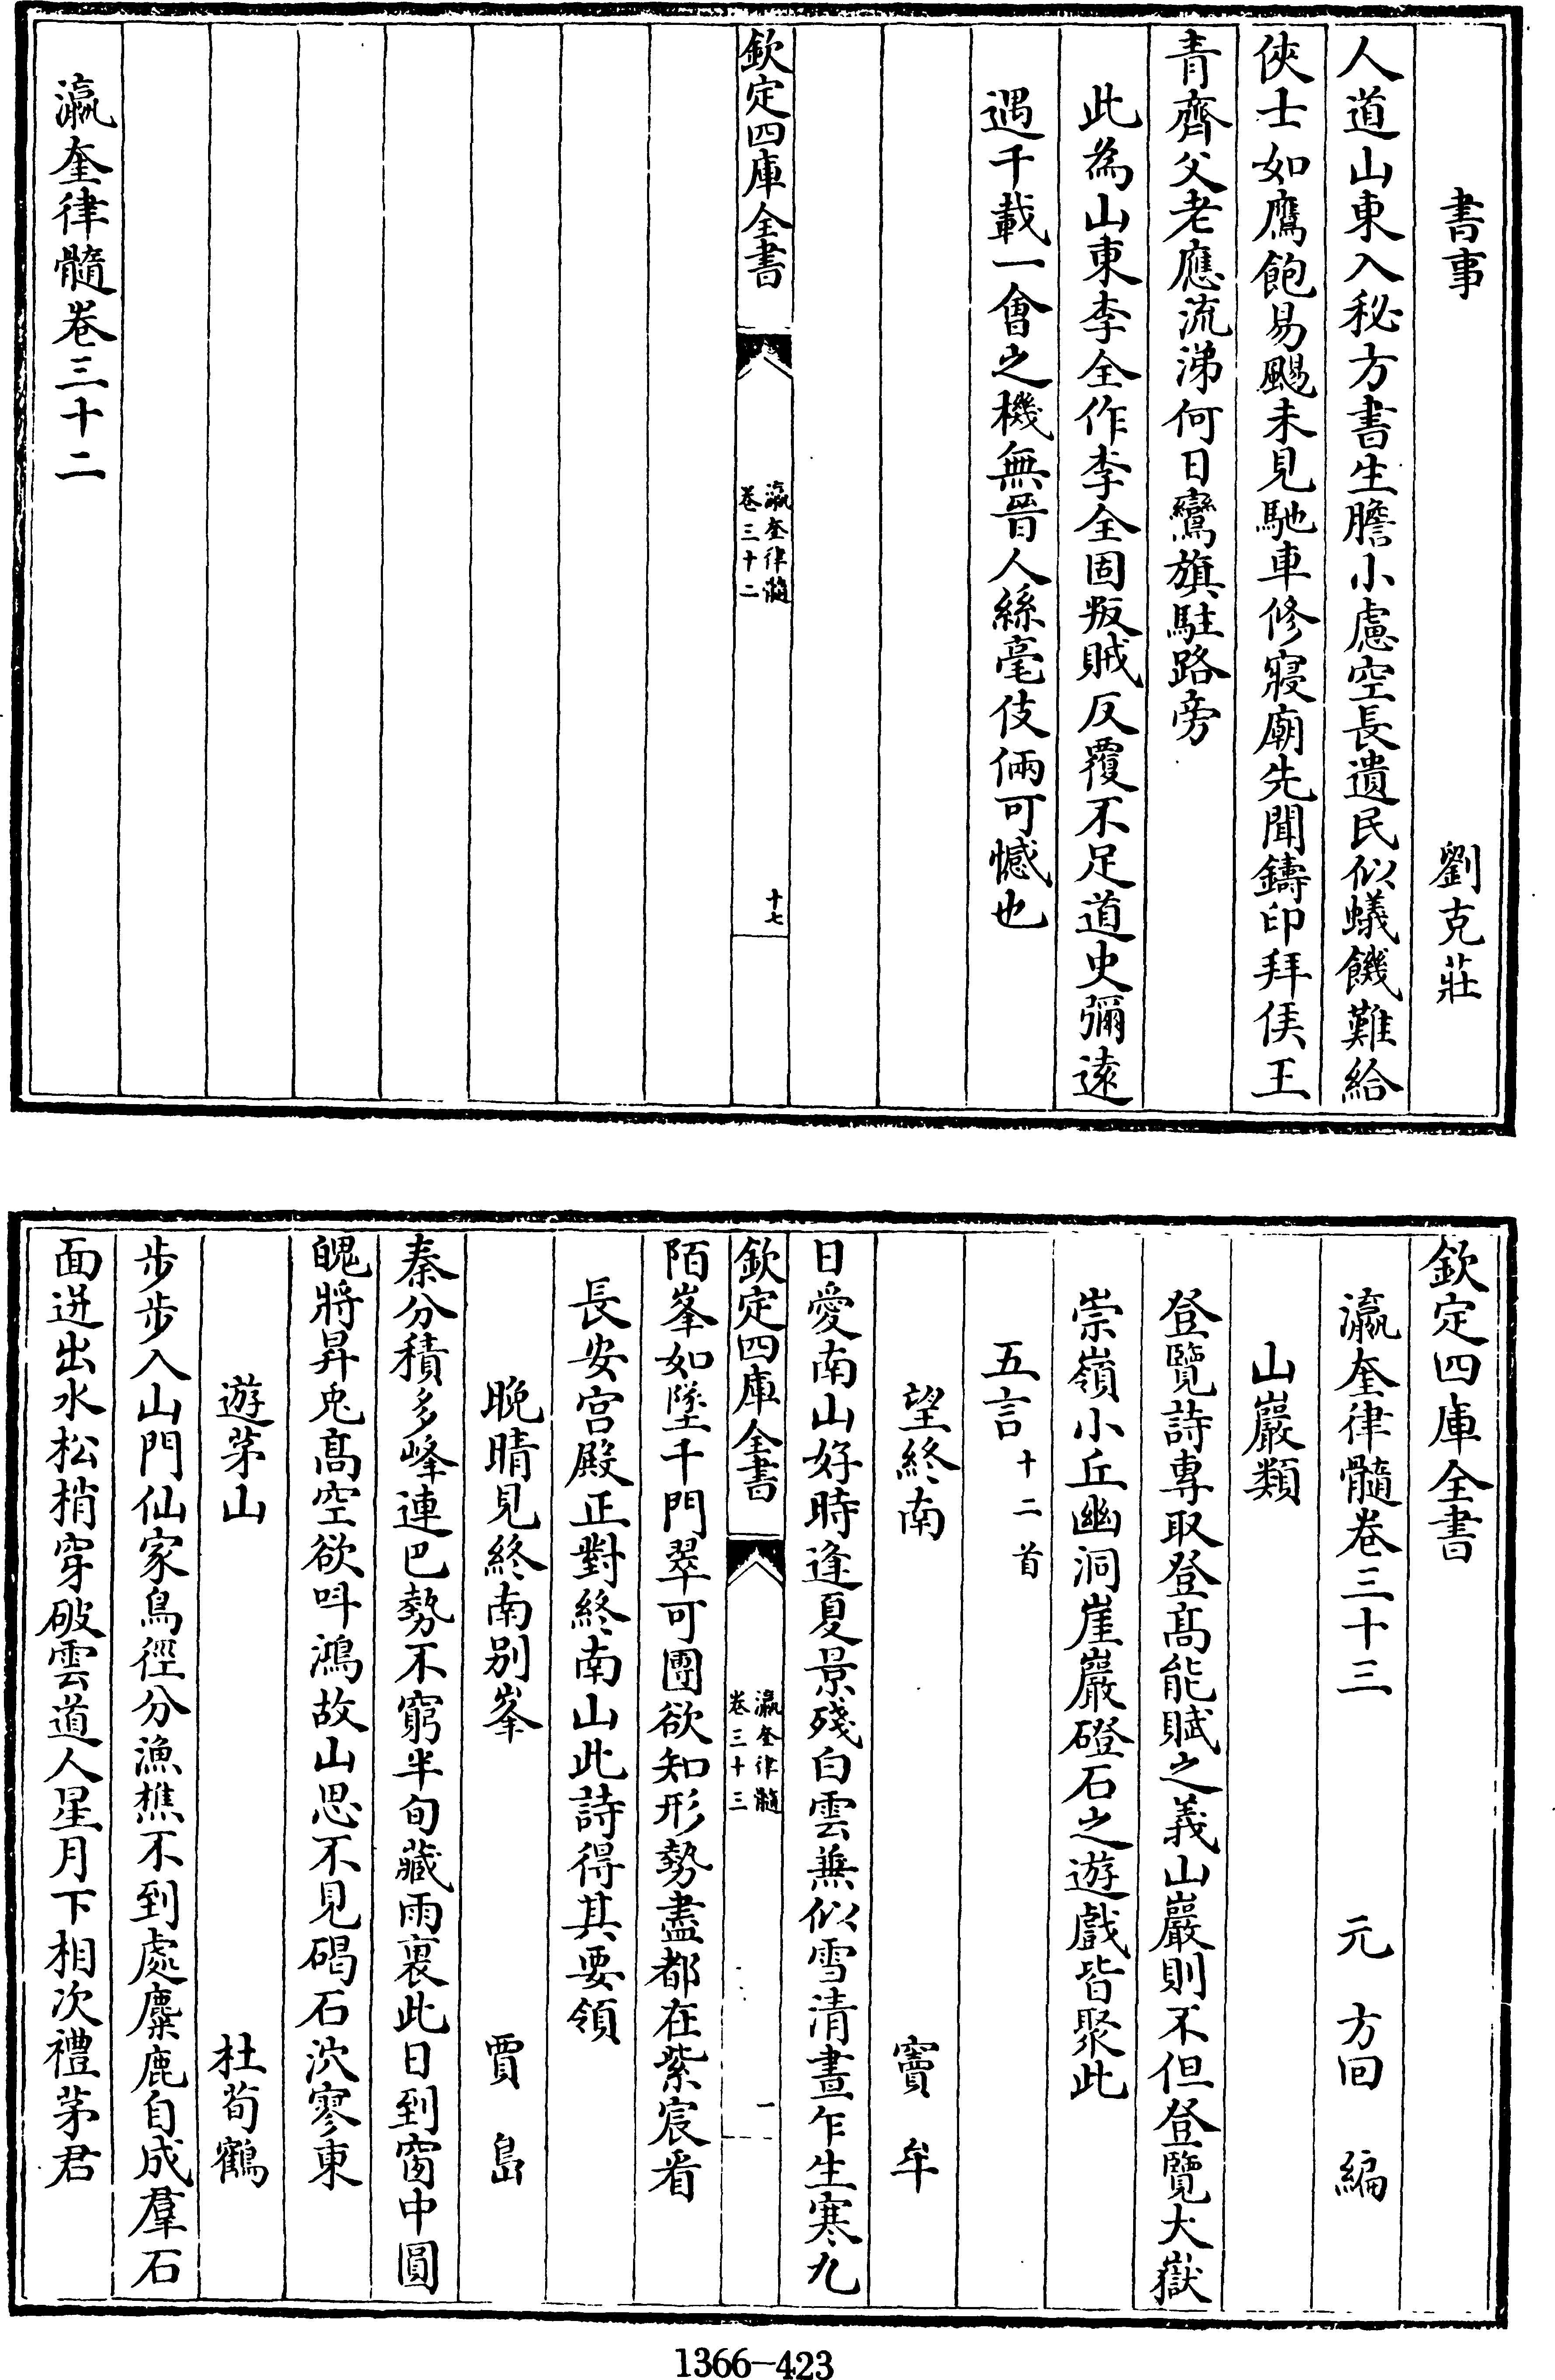 書事　劉克莊
人道山東入秘方書生膽小慮空長遺民似蟻饑難給
俠士如鷹飽易颺未見馳車修寢廟先聞鑄印拜侯王
青齊父老應流涕何日鸞旗駐路旁
此為山東李全作李全固叛賊反覆不足道史彌遠
遇千載一會之機無晉人絲毫伎倆可憾也
欽定四庫全書
瀛奎律髓
卷三十二
十七
瀛奎律髓卷三十二
欽定四庫全書
瀛奎律髓卷三十三　元　方回　編
山巖類
登覽詩專取登髙能賦之義山巖則不但登覽大嶽
崇嶺小丘幽洞崖巖磴石之遊戲皆聚此
五言十二首
望終南　竇牟
日愛南山好時逢夏景殘白雲兼似雪清晝乍生寒九
欽定四庫全書
瀛奎律髓
卷三十三
一
陌峯如墜千門翠可團欲知形勢盡都在紫宸看
長安宮殿正對終南山此詩得其要領
晚晴見終南别峯　賈島
秦分積多峰連巴勢不窮半旬藏雨裏此日到窗中圓
魄將昇兎髙空欲呌鴻故山思不見碣石泬寥東
遊茅山　杜荀鶴
步步入山門仙家鳥徑分漁樵不到處麋鹿自成羣石
面迸出水松梢穿破雲道人星月下相次禮茅君
1366-423